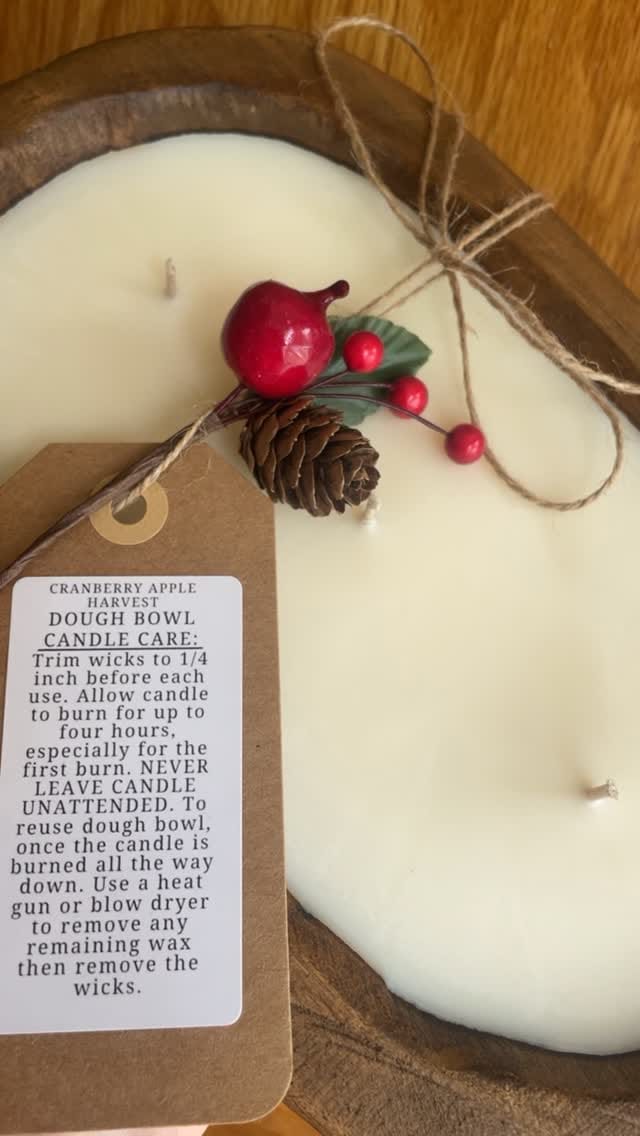 CRANBERRY APPLE
HARVEST
DOUGH BOWL
CANDLE CARE:
Trim wicks to 1/4
inch before each
use. Allow candle
to burn for up to
four hours,
especially for the
first burn. NEVER
LEAVE CANDLE
UNATTENDED. To
reuse dough bowl,
once the candle is
burned all the way
down. Use a heat
gun or blow dryer
to remove any
remaining wax
then remove the
wicks.